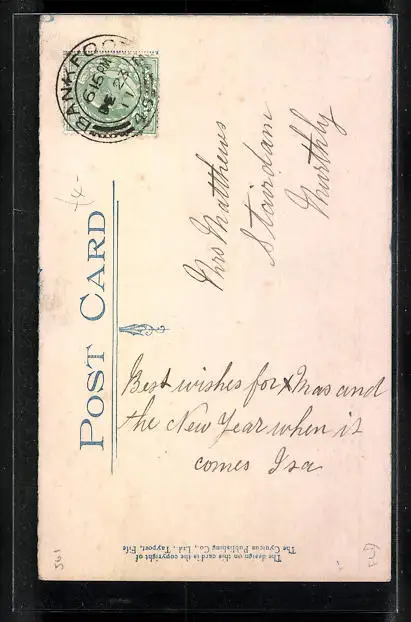 BANKFOOT
6 15 PM
DE 24
17
POST CARD
Best wishes for Xmas and
the New Year when it
comes Isa
Mrs Matthews
Stairdam
Murthly
The design on this card is the copyright of
The Cynicus Publishing Co., Ltd., Tayport, Fife